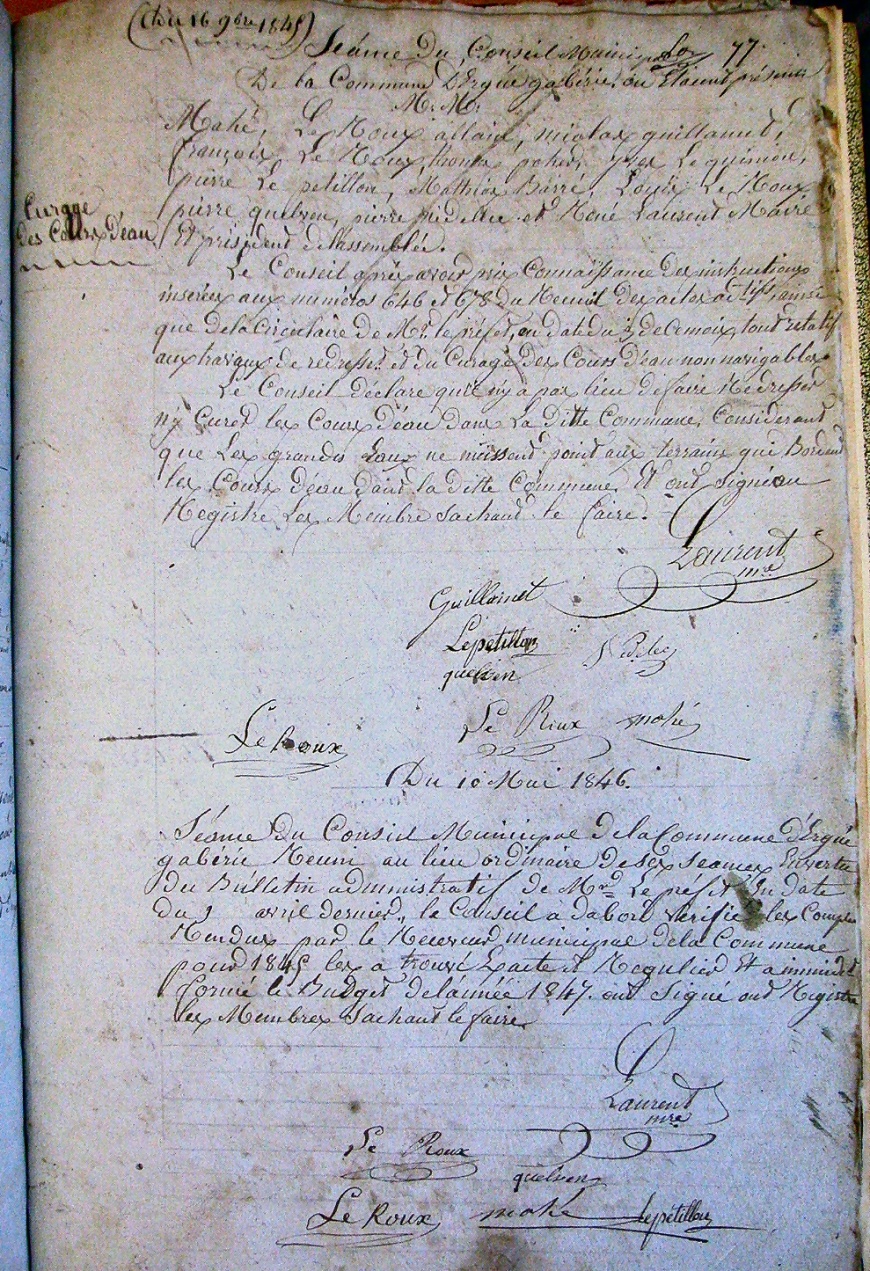 (Du 16 9bre 1845)
Séance Du Conseil Municipal 77.
De la Commune D'Ergué gabéric, où Etaient présents
M. M.
Mahé, Le Roux allain, nicolas guillamet,
françois Le Roux, thomas yves Le quinion,
pierre Le petillon, Mathias Barré, Louis Le Roux
pierre quelven, pierre et René Laurent Maire
Et président de l'assemblée.
Curage
Des Cours D'eau
Le Conseil après avoir pris Connaissance Des instructions
inserées aux numéros 646 et 678 du Recueil Des actes ad.tifs, ainsi
que de la Circulaire de Mr. le préfet, en date du 3 de ce mois, tout relatif
aux travaux de redresst. et du Curage Des Cours D'eau non navigables.
Le Conseil déclare qu'il n'y a pas lieu de faire Redresser
n'y Curer les Cours d'eau dans La Ditte Commune, Considerant
que Les grandes Eaux ne nuissent point aux terrains qui Bordent
les Cours d'eau dans la ditte Commune. Et ont signé au
Registre Les Membre sachant le faire.
Laurent
mre
Guillamet
Lepetillon
quelven
Le Roux mahé
LeRoux
Du 10 Mai 1846.
Séance Du Conseil Municipal De la Commune d'Ergué
gabéric Reuni au lieu ordinaire De ses seances En vertu
Du Bulletin administratif de Mr. Le préfet En date
du 9 avril dernier, le Conseil a dabord verifié les Comptes
Rendus par le Receveur municipal de la Commune
pour 1845 les a trouvé Exacte et Regulier Et a
formé le Budget de l'année 1847. ont signé au Registre
les Membres sachant le faire
Laurent
mre
Le Roux
quelven
Le Roux mahé Lepetillon